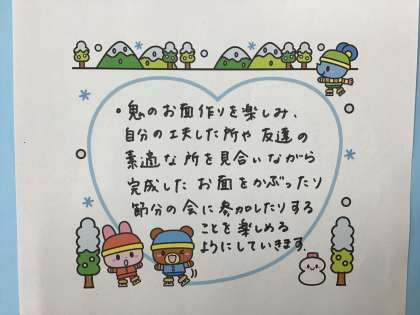 ・鬼のお面作りを楽しみ、
自分の工夫した所や友達の
素適な所を見合いながら
完成したお面をかぶったり
節分の会に参加したりする
ことを楽しめる
ようにしていきます。